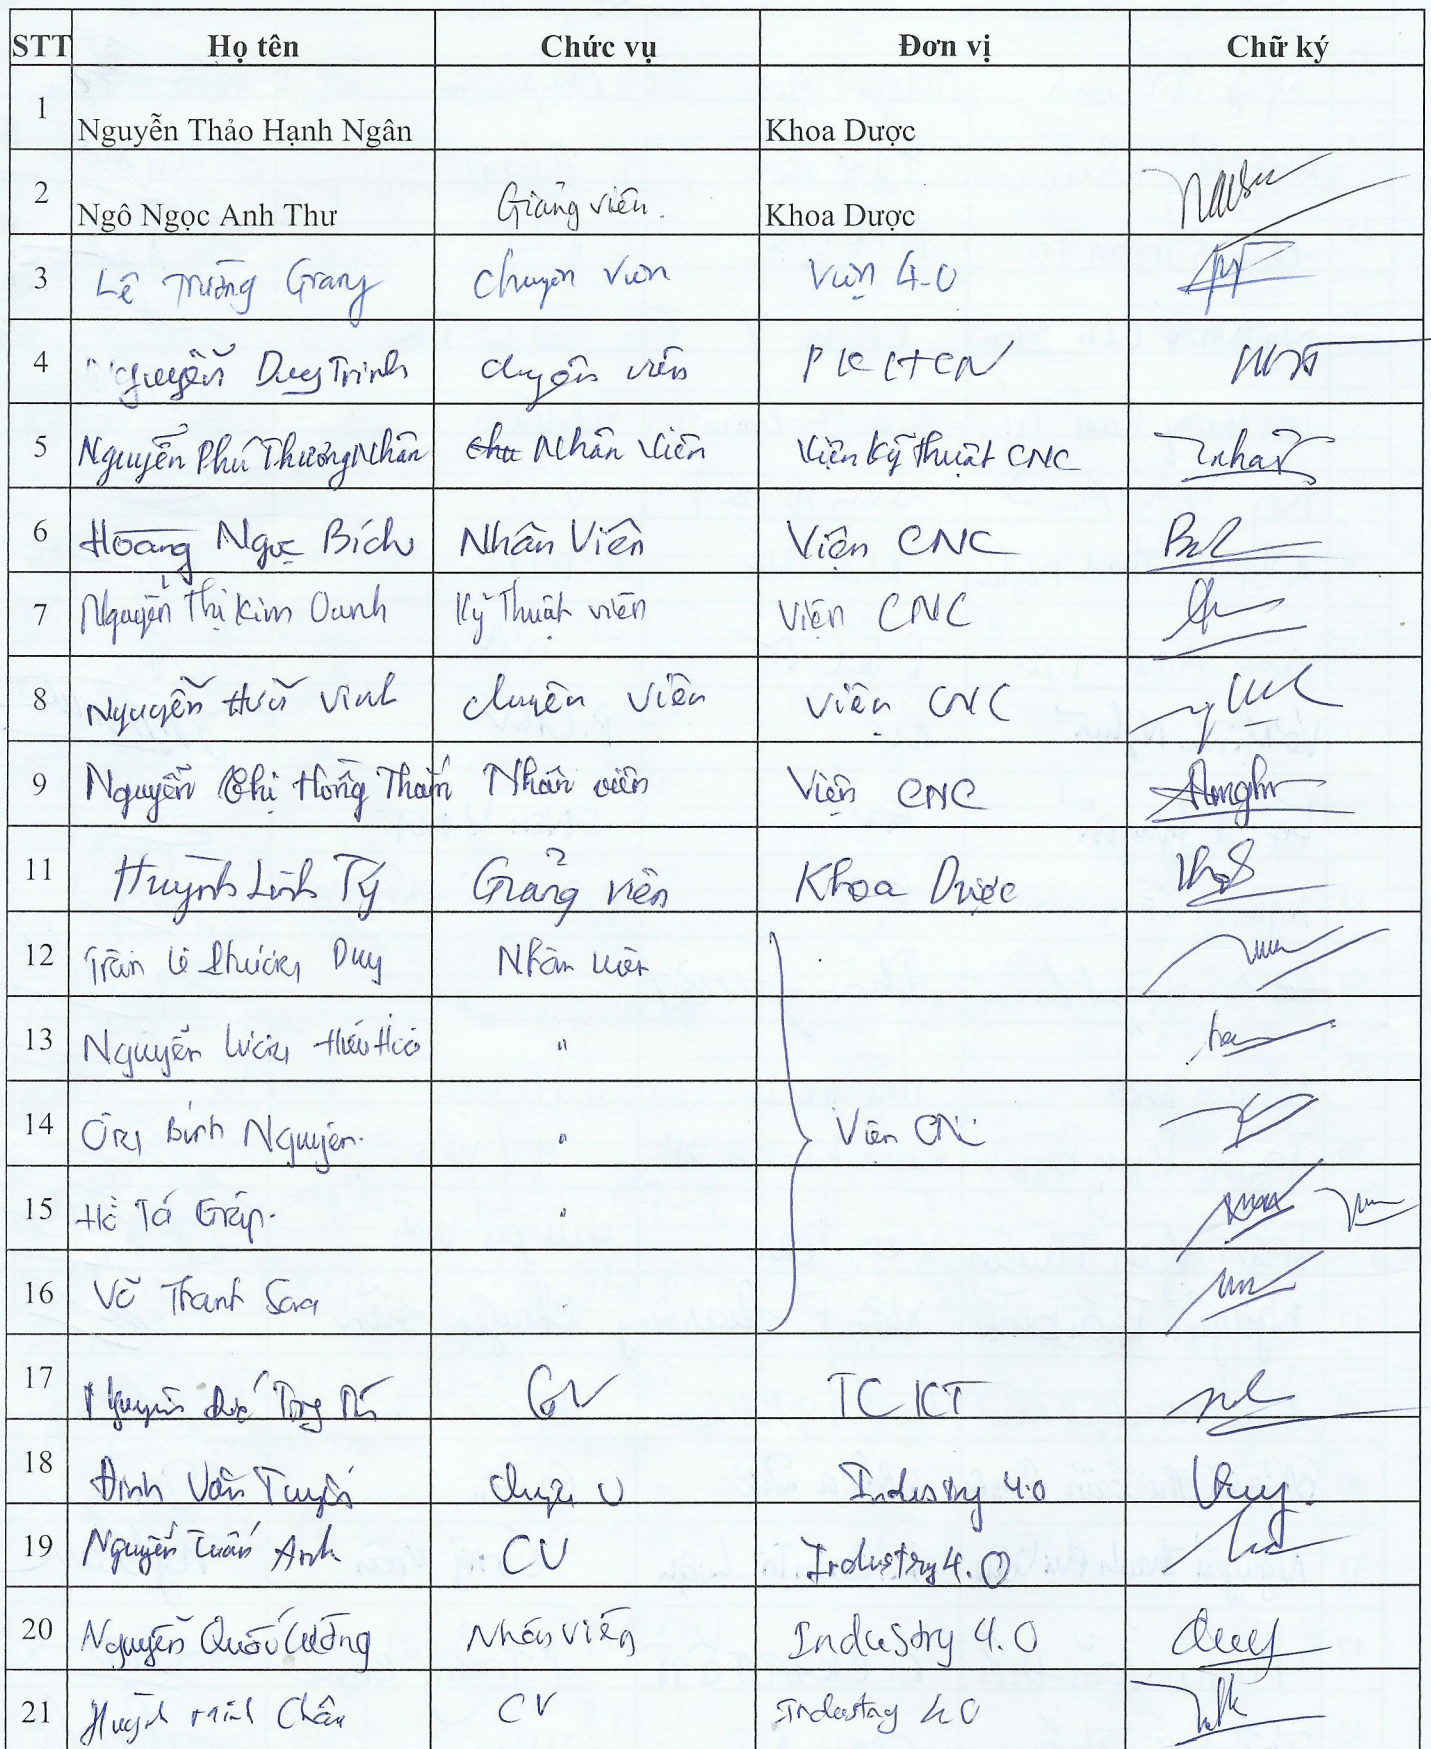 STT Họ tên Chức vụ Đơn vị Chữ ký
1 Nguyễn Thảo Hạnh Ngân Khoa Dược
2 Ngô Ngọc Anh Thư Giảng viên. Khoa Dược
3 Lê Trường Giang Chuyên viên Viện 4.0
4 Nguyễn Duy Trinh Chuyên viên
5 Nguyễn Phú Thương Nhân Nhân Viên Viện Kỹ thuật CNC
6 Hoàng Ngọc Bích Nhân Viên Viện CNC
7 Nguyễn Thị Kim Oanh Kỹ Thuật viên Viện CNC
8 Nguyễn Hữu Vinh chuyên viên Viện CNC
9 Nguyễn Thị Hồng Thắm Nhân viên Viện CNC
11 Huỳnh Lĩnh Tý Giảng viên Khoa Dược
12 Trần Lê Duy Nhân viên
13 Nguyễn "
14 Bình Nguyên. " Viện CNC
15 Hồ Tá Giáp. "
16 Võ Thanh
17 Nguyễn GV
18 Đinh Văn Tuyến Industry 4.0
19 Nguyễn Tuấn Anh CV Industry 4.0
20 Nguyễn Quốc Cường Nhân viên Industry 4.0
21 Huỳnh Minh Chân CV Industry 4.0